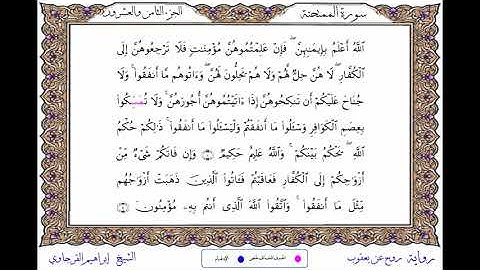 سورة الممتحنة
الجزء الثامن والعشرون
ٱللَّهُ أَعْلَمُ بِإِيمَٰنِهِنَّ ۖ فَإِنْ عَلِمْتُمُوهُنَّ مُؤْمِنَٰتٍ فَلَا تَرْجِعُوهُنَّ إِلَى
ٱلْكُفَّارِ ۖ لَا هُنَّ حِلٌّ لَّهُمْ وَلَا هُمْ يَحِلُّونَ لَهُنَّ ۖ وَءَاتُوهُم مَّا أَنفَقُوا۟ ۚ وَلَا
جُنَاحَ عَلَيْكُمْ أَن تَنكِحُوهُنَّ إِذَا ءَاتَيْتُمُوهُنَّ أُجُورَهُنَّ ۚ وَلَا تُمَسِّكُوا۟
بِعِصَمِ ٱلْكَوَافِرِ وَسْـَٔلُوا۟ مَا أَنفَقْتُمْ وَلْيَسْـَٔلُوا۟ مَا أَنفَقُوا۟ ۚ ذَٰلِكُمْ حُكْمُ
ٱللَّهِ ۖ يَحْكُمُ بَيْنَكُمْ ۚ وَٱللَّهُ عَلِيمٌ حَكِيمٌ ۝ وَإِن فَاتَكُمْ شَىْءٌ مِّنْ
أَزْوَٰجِكُمْ إِلَى ٱلْكُفَّارِ فَعَاقَبْتُمْ فَـَٔاتُوا۟ ٱلَّذِينَ ذَهَبَتْ أَزْوَٰجُهُم
مِّثْلَ مَا أَنفَقُوا۟ ۚ وَٱتَّقُوا۟ ٱللَّهَ ٱلَّذِى أَنتُم بِهِۦ مُؤْمِنُونَ ۝
رواية روح عن يعقوب
الشيخ إبراهيم القرجاوي